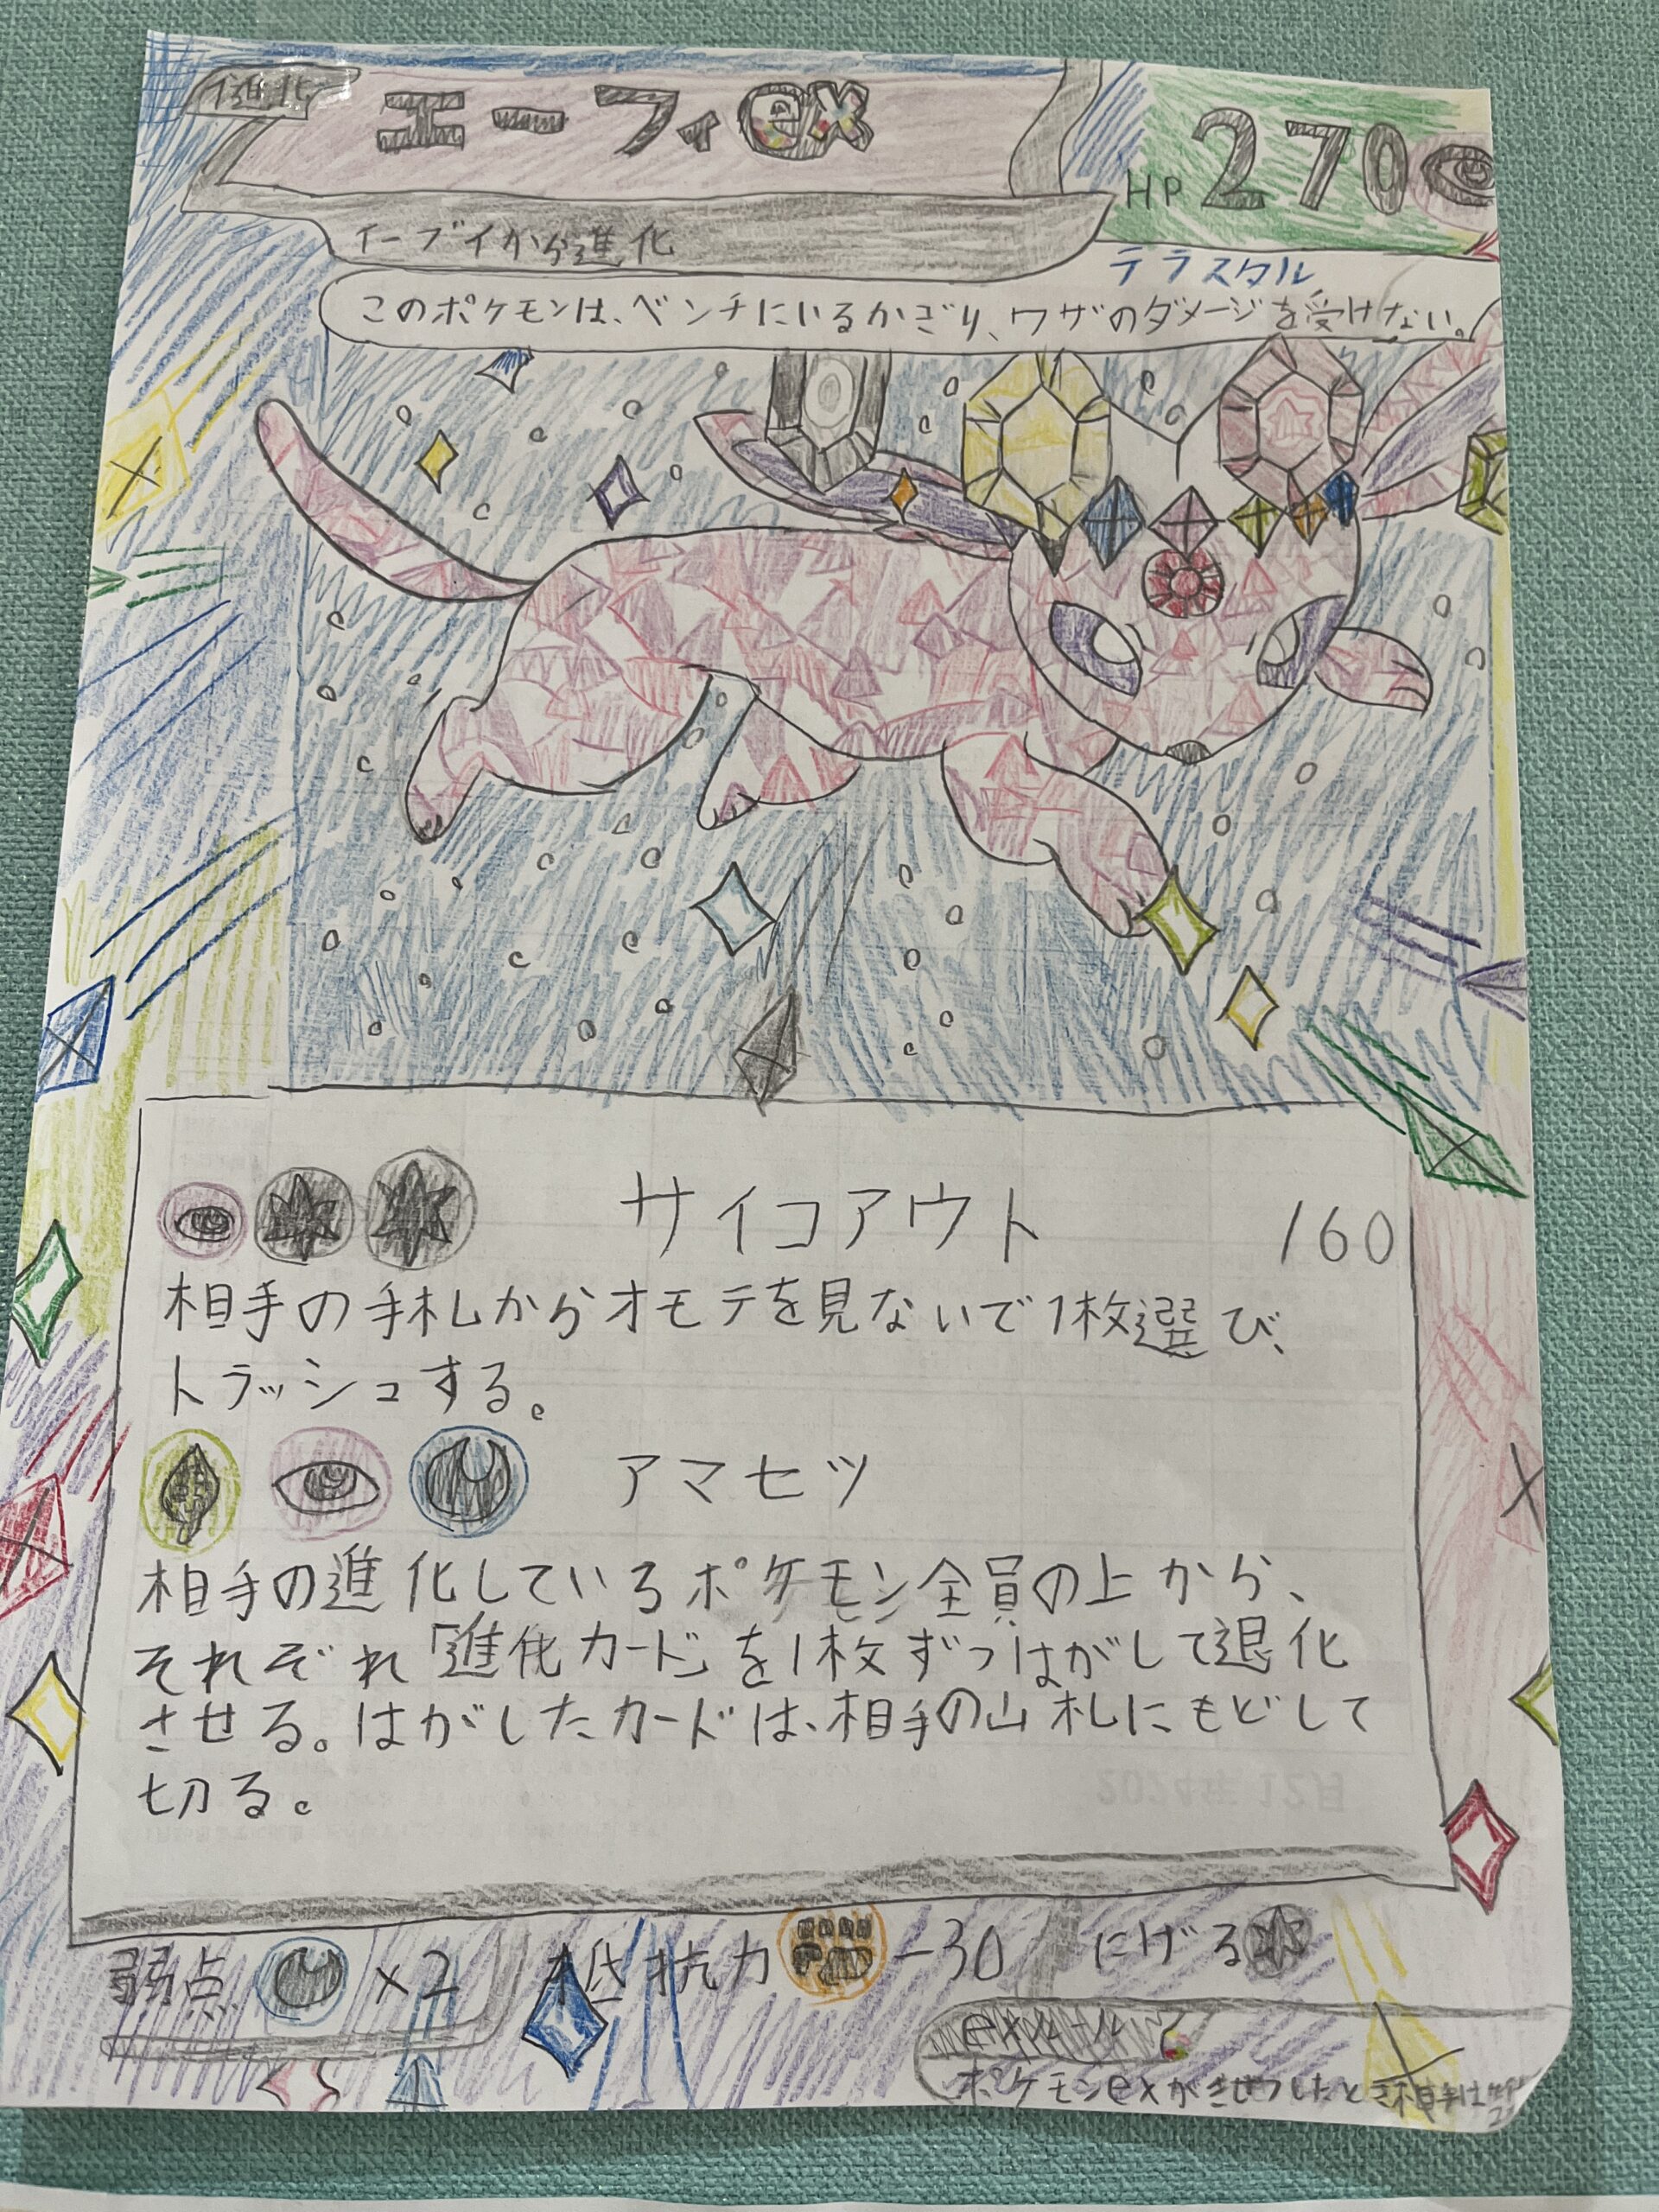 進化 エーフィex HP 270
イーブイから進化
テラスタル
このポケモンは、ベンチにいるかぎり、ワザのダメージを受けない。
サイコアウト 160
相手の手札からオモテを見ないで1枚選び、
トラッシュする。
アマセツ
相手の進化しているポケモン全員の上から、
それぞれ「進化カード」を1枚ずつはがして退化
させる。はがしたカードは、相手の山札にもどして
切る。
2024年12月
弱点 ×2 抵抗力 -30 にげる
exルール
ポケモンexがきぜつしたとき相手は